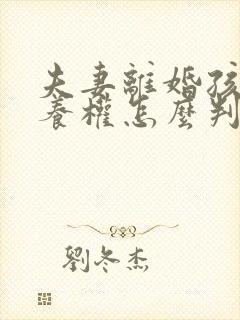 夫妻離婚孩
養權怎麼判
劉冬杰